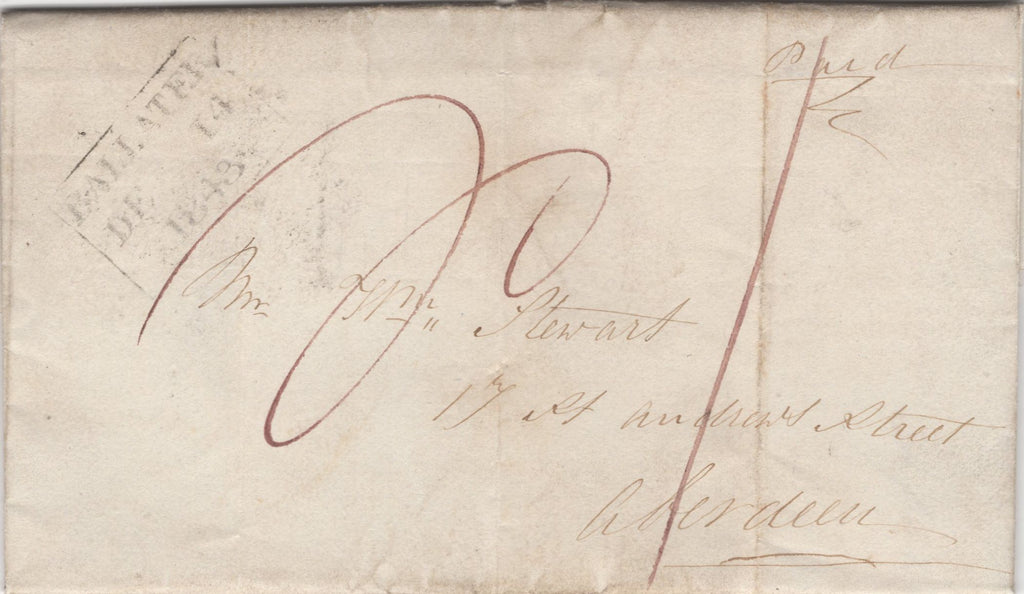 BALLATER
DE 14
1843
Paid
Mr. Wm. Stewart
17 St Andrews Street
Aberdeen